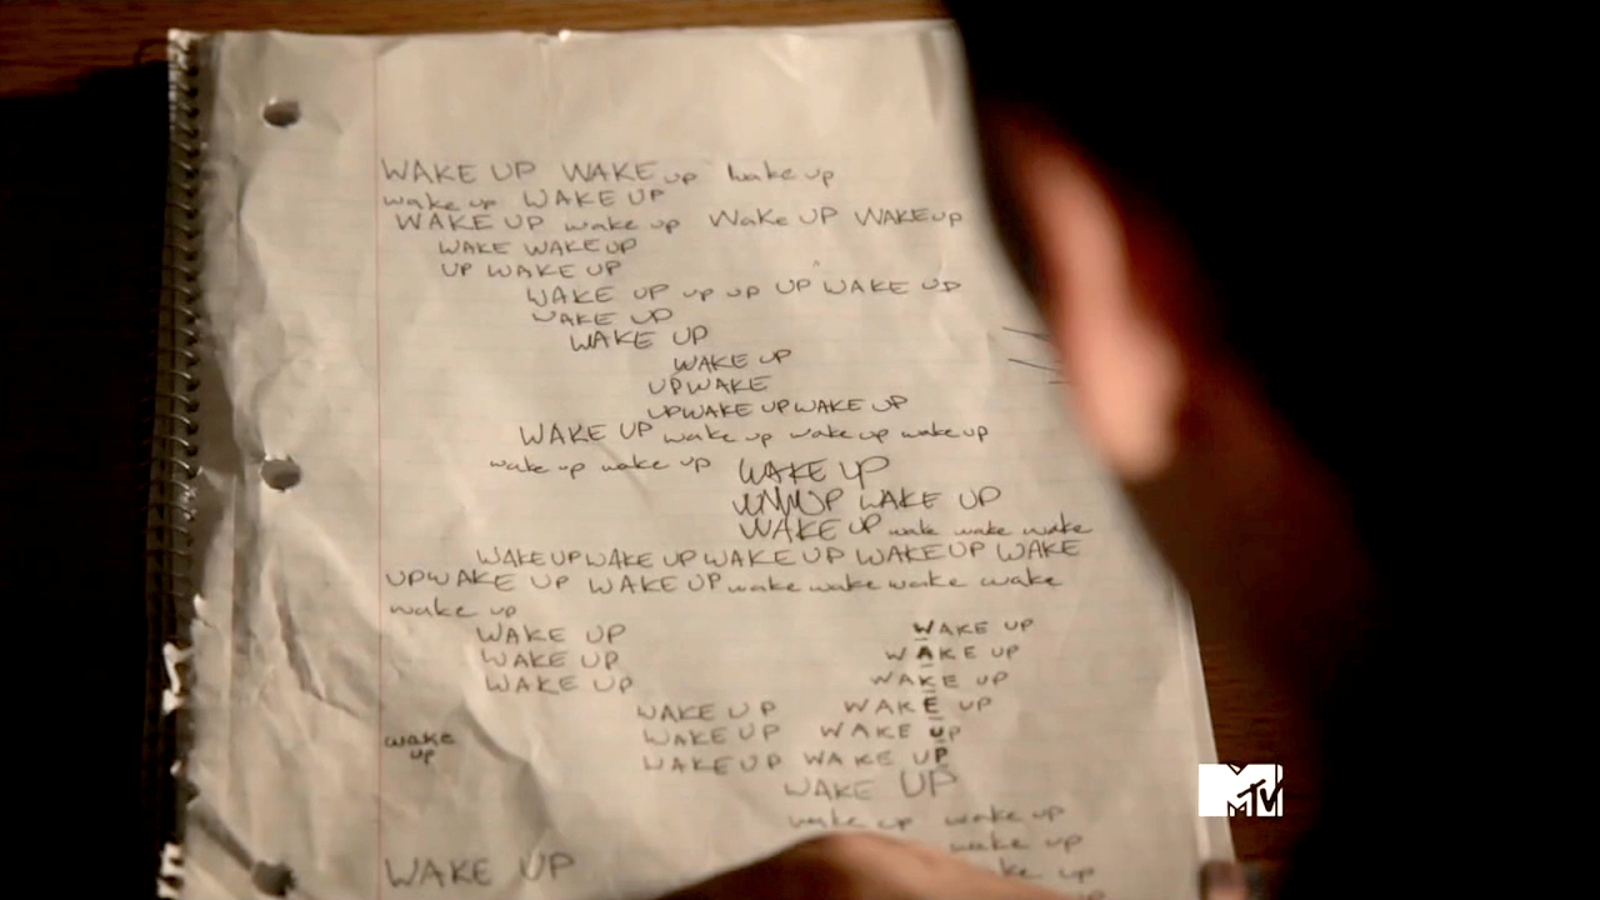 WAKE UP WAKE up wake up
wake up WAKE UP
WAKE UP wake up Wake UP WAKE up
WAKE WAKE UP
UP WAKE UP
WAKE UP up up UP WAKE UP
WAKE UP
WAKE UP
WAKE UP
UPWAKE
UPWAKE UPWAKE UP
WAKE UP wake up wake up wake up
wake up wake up WAKE UP
UP WAKE UP
WAKE UP wake wake wake
WAKE UPWAKE UP WAKE UP WAKE UP WAKE
UPWAKE UP WAKE UP wake wake wake wake
wake up
WAKE UP WAKE UP
WAKE UP WAKE UP
WAKE UP WAKE UP
WAKE UP WAKE UP
wake WAKE UP WAKE UP
up WAKE UP WAKE UP
WAKE UP
wake up wake up
wake up
WAKE UP ke up
MTV